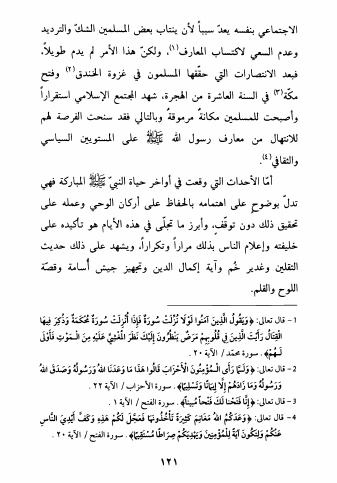 الاجتماعي بنفسه يعدّ سبباً لأن ينتاب بعض المسلمين الشكّ والترديد
وعدم السعي لاكتساب المعارف(١)، ولكنّ هذا الأمر لم يدم طويلاً،
فبعد الانتصارات التي حقّقها المسلمون في غزوة الخندق(٢) وفتح
مكّة(٣) في السنة العاشرة من الهجرة، شهد المجتمع الإسلامي استقراراً
وأصبحت للمسلمين مكانةً مرموقةً وبالتالي فقد سنحت الفرصة لهم
للانتهال من معارف رسول الله ﷺ على المستويين السياسي
والثقافي(٤).
أمّا الأحداث التي وقعت في أواخر حياة النبيّ ﷺ المباركة فهي
تدلّ بوضوحٍ على اهتمامه بالحفاظ على أركان الوحي وعمله على
تحقيق ذلك دون توقّفٍ، وأبرز ما تجلّى في هذه الأيام هو تأكيده على
خليفته وإعلام الناس بذلك مراراً وتكراراً، ويشهد على ذلك حديث
الثقلين وغدير خُم وآية إكمال الدين وتجهيز جيش أسامة وقصّة
اللوح والقلم.
١ - قال تعالى: ﴿وَيَقُولُ الَّذِينَ آمَنُوا لَوْلَا نُزِّلَتْ سُورَةٌ فَإِذَا أُنْزِلَتْ سُورَةٌ مُحْكَمَةٌ وَذُكِرَ فِيهَا
الْقِتَالُ رَأَيْتَ الَّذِينَ فِي قُلُوبِهِمْ مَرَضٌ يَنْظُرُونَ إِلَيْكَ نَظَرَ الْمَغْشِيِّ عَلَيْهِ مِنَ الْمَوْتِ فَأَوْلَى
لَهُمْ﴾. سورة محمّد / الآية ٢٠.
٢ - قال تعالى: ﴿وَلَمَّا رَأَى الْمُؤْمِنُونَ الْأَحْزَابَ قَالُوا هَذَا مَا وَعَدَنَا اللهُ وَرَسُولُهُ وَصَدَقَ اللهُ
وَرَسُولُهُ وَمَا زَادَهُمْ إِلَّا إِيمَانًا وَتَسْلِيمًا﴾. سورة الأحزاب / الآية ٢٢.
٣ - قال تعالى: ﴿إِنَّا فَتَحْنَا لَكَ فَتْحاً مُبِيناً﴾. سورة الفتح / الآية ١.
٤ - قال تعالى: ﴿وَعَدَكُمُ اللهُ مَغَانِمَ كَثِيرَةً تَأْخُذُونَهَا فَعَجَّلَ لَكُمْ هَذِهِ وَكَفَّ أَيْدِيَ النَّاسِ
عَنْكُمْ وَلِتَكُونَ آيَةً لِلْمُؤْمِنِينَ وَيَهْدِيَكُمْ صِرَاطًا مُسْتَقِيمًا﴾. سورة الفتح / الآية ٢٠.
١٢١